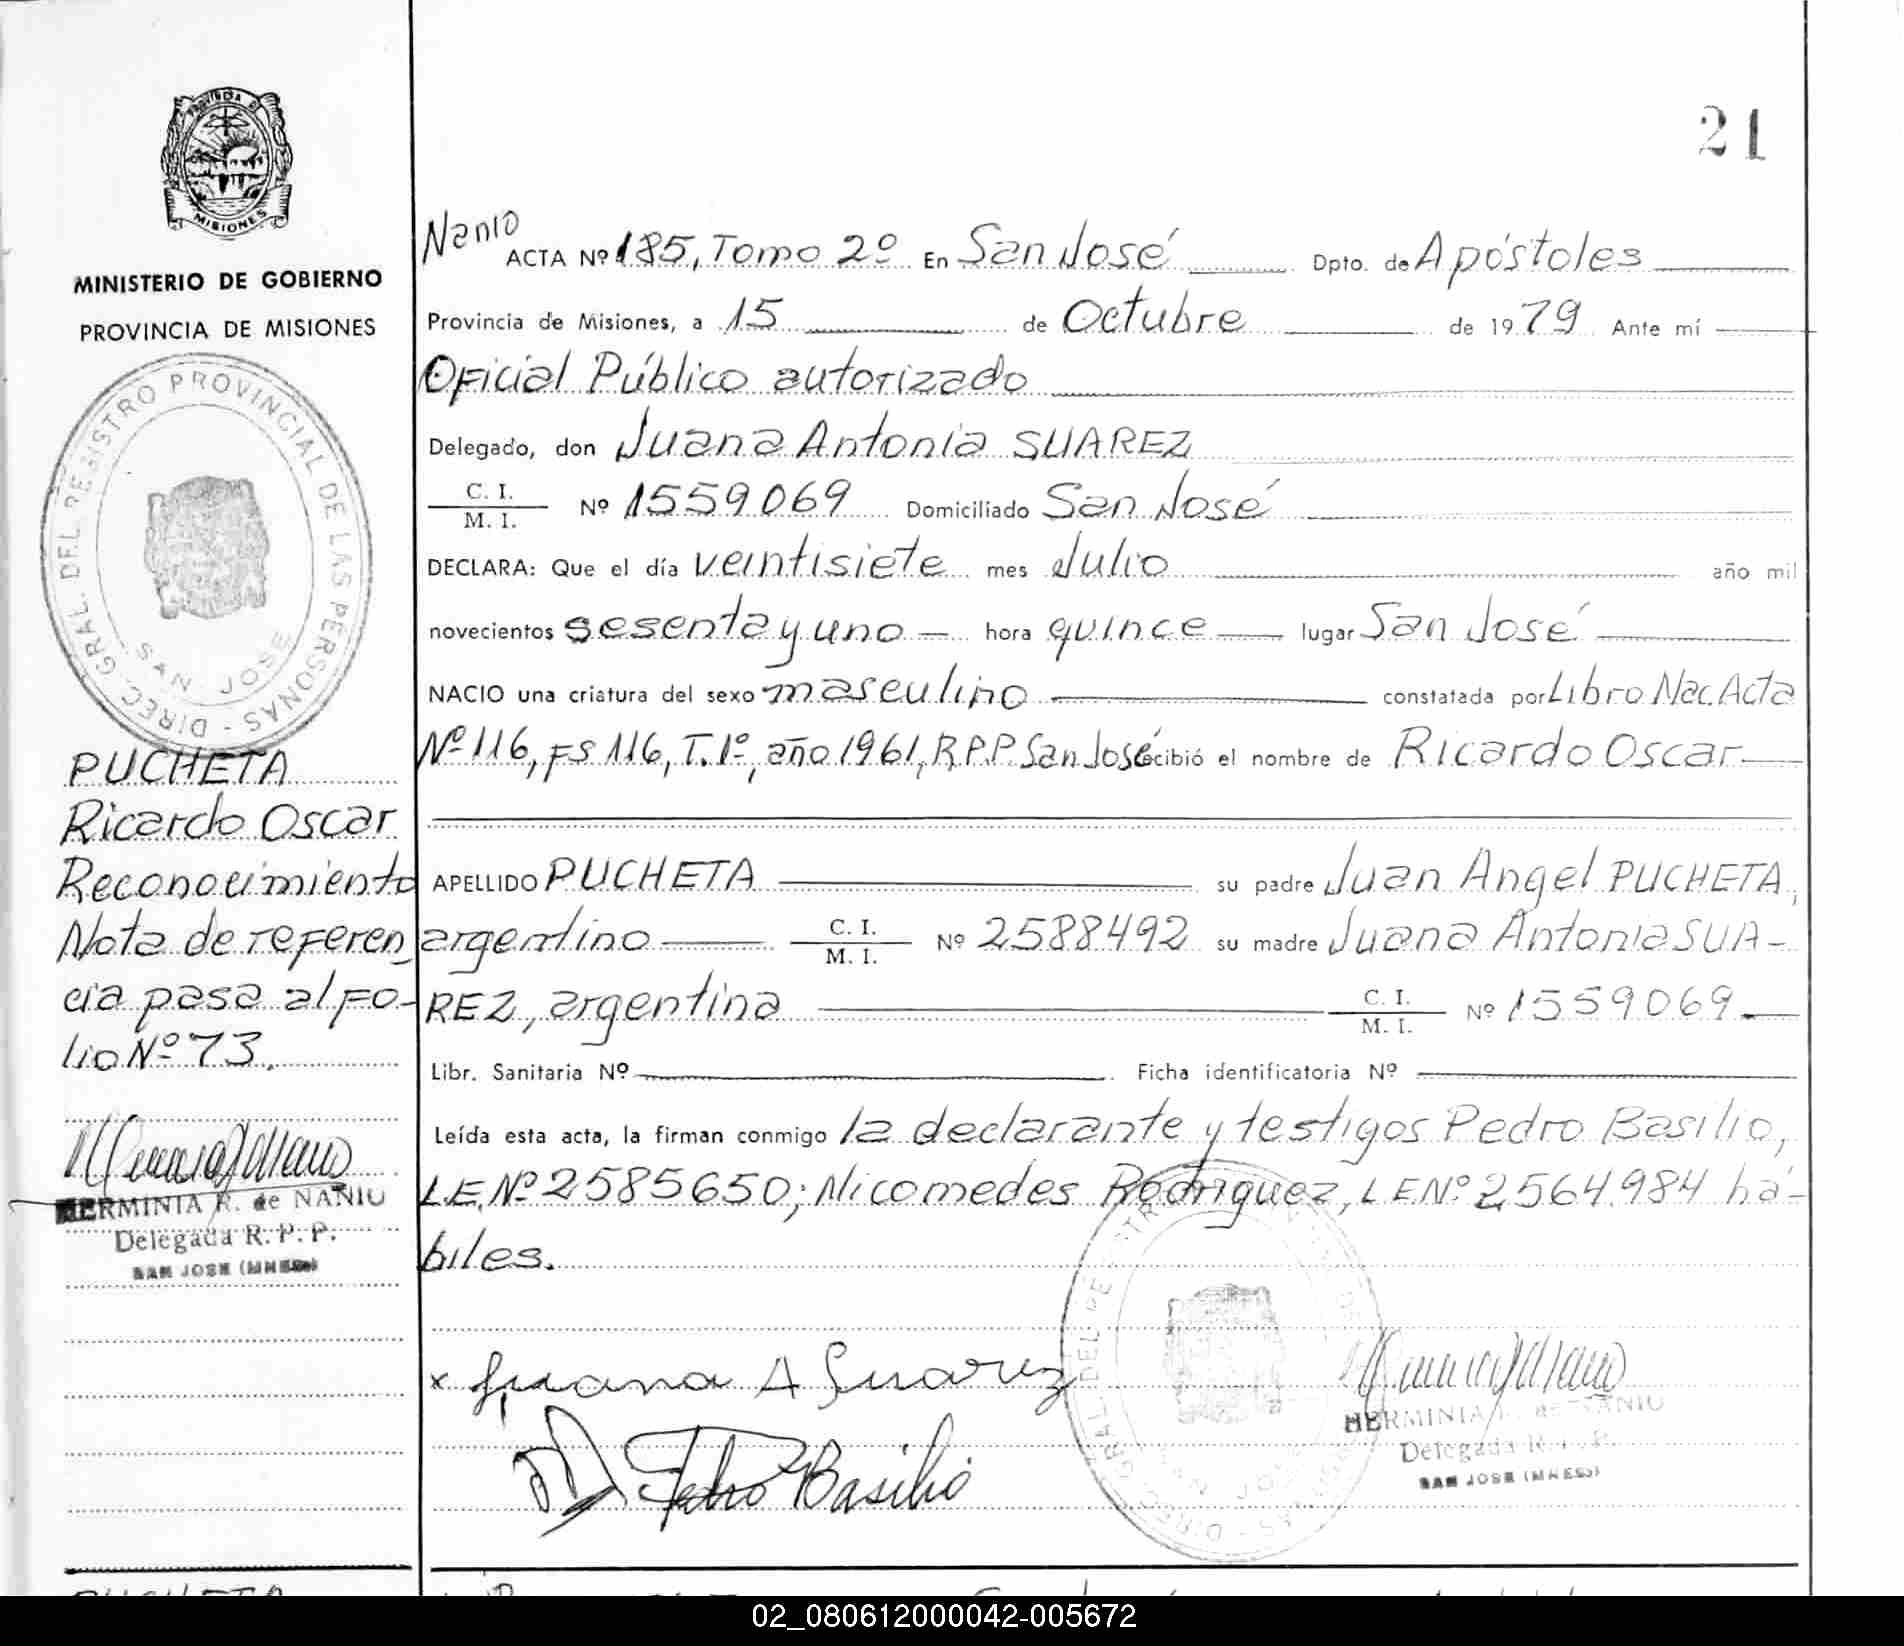 PROVINCIA DE
MISIONES
MINISTERIO DE GOBIERNO
PROVINCIA DE MISIONES
DIREC. GRAL. DEL REGISTRO PROVINCIAL DE LAS PERSONAS -
SAN JOSE
PUCHETA
Ricardo Oscar
Reconocimiento
Nota de referen
cia pasa al fo-
lio Nº 73.
HERMINIA R. de NAÑIU
Delegada R. P. P.
SAN JOSE (MNES)
21
ACTA Nº 185, Tomo 2º En San José Dpto. de Apóstoles
Provincia de Misiones, a 15 de Octubre de 1979 Ante mí
Oficial Público autorizado
Delegado, don Juana Antonia SUAREZ
C. I.
M. I. Nº 1559069 Domiciliado San José
DECLARA: Que el día veintisiete mes Julio año mil
novecientos sesenta y uno — hora quince — lugar San José
NACIO una criatura del sexo masculino constatada por Libro Nac. Acta
Nº 116, FS 116, T. 1º, año 1961, R.P.P. San José recibió el nombre de Ricardo Oscar
APELLIDO PUCHETA su padre Juan Angel PUCHETA,
argentino C. I.
M. I. Nº 2588492 su madre Juana Antonia SUA-
REZ, argentina C. I.
M. I. Nº 1559069.
Libr. Sanitaria Nº Ficha identificatoria Nº
Leída esta acta, la firman conmigo la declarante y testigos Pedro Basilio,
L.E. Nº 2585650; Nicomedes Rodriguez, L E Nº 2564.984 há-
biles.
x Juana A Suarez
Pedro Basilio
HERMINIA R. de NAÑIU
Delegada R. P. P.
SAN JOSE (MNES)
PUCHETA
02_080612000042-005672